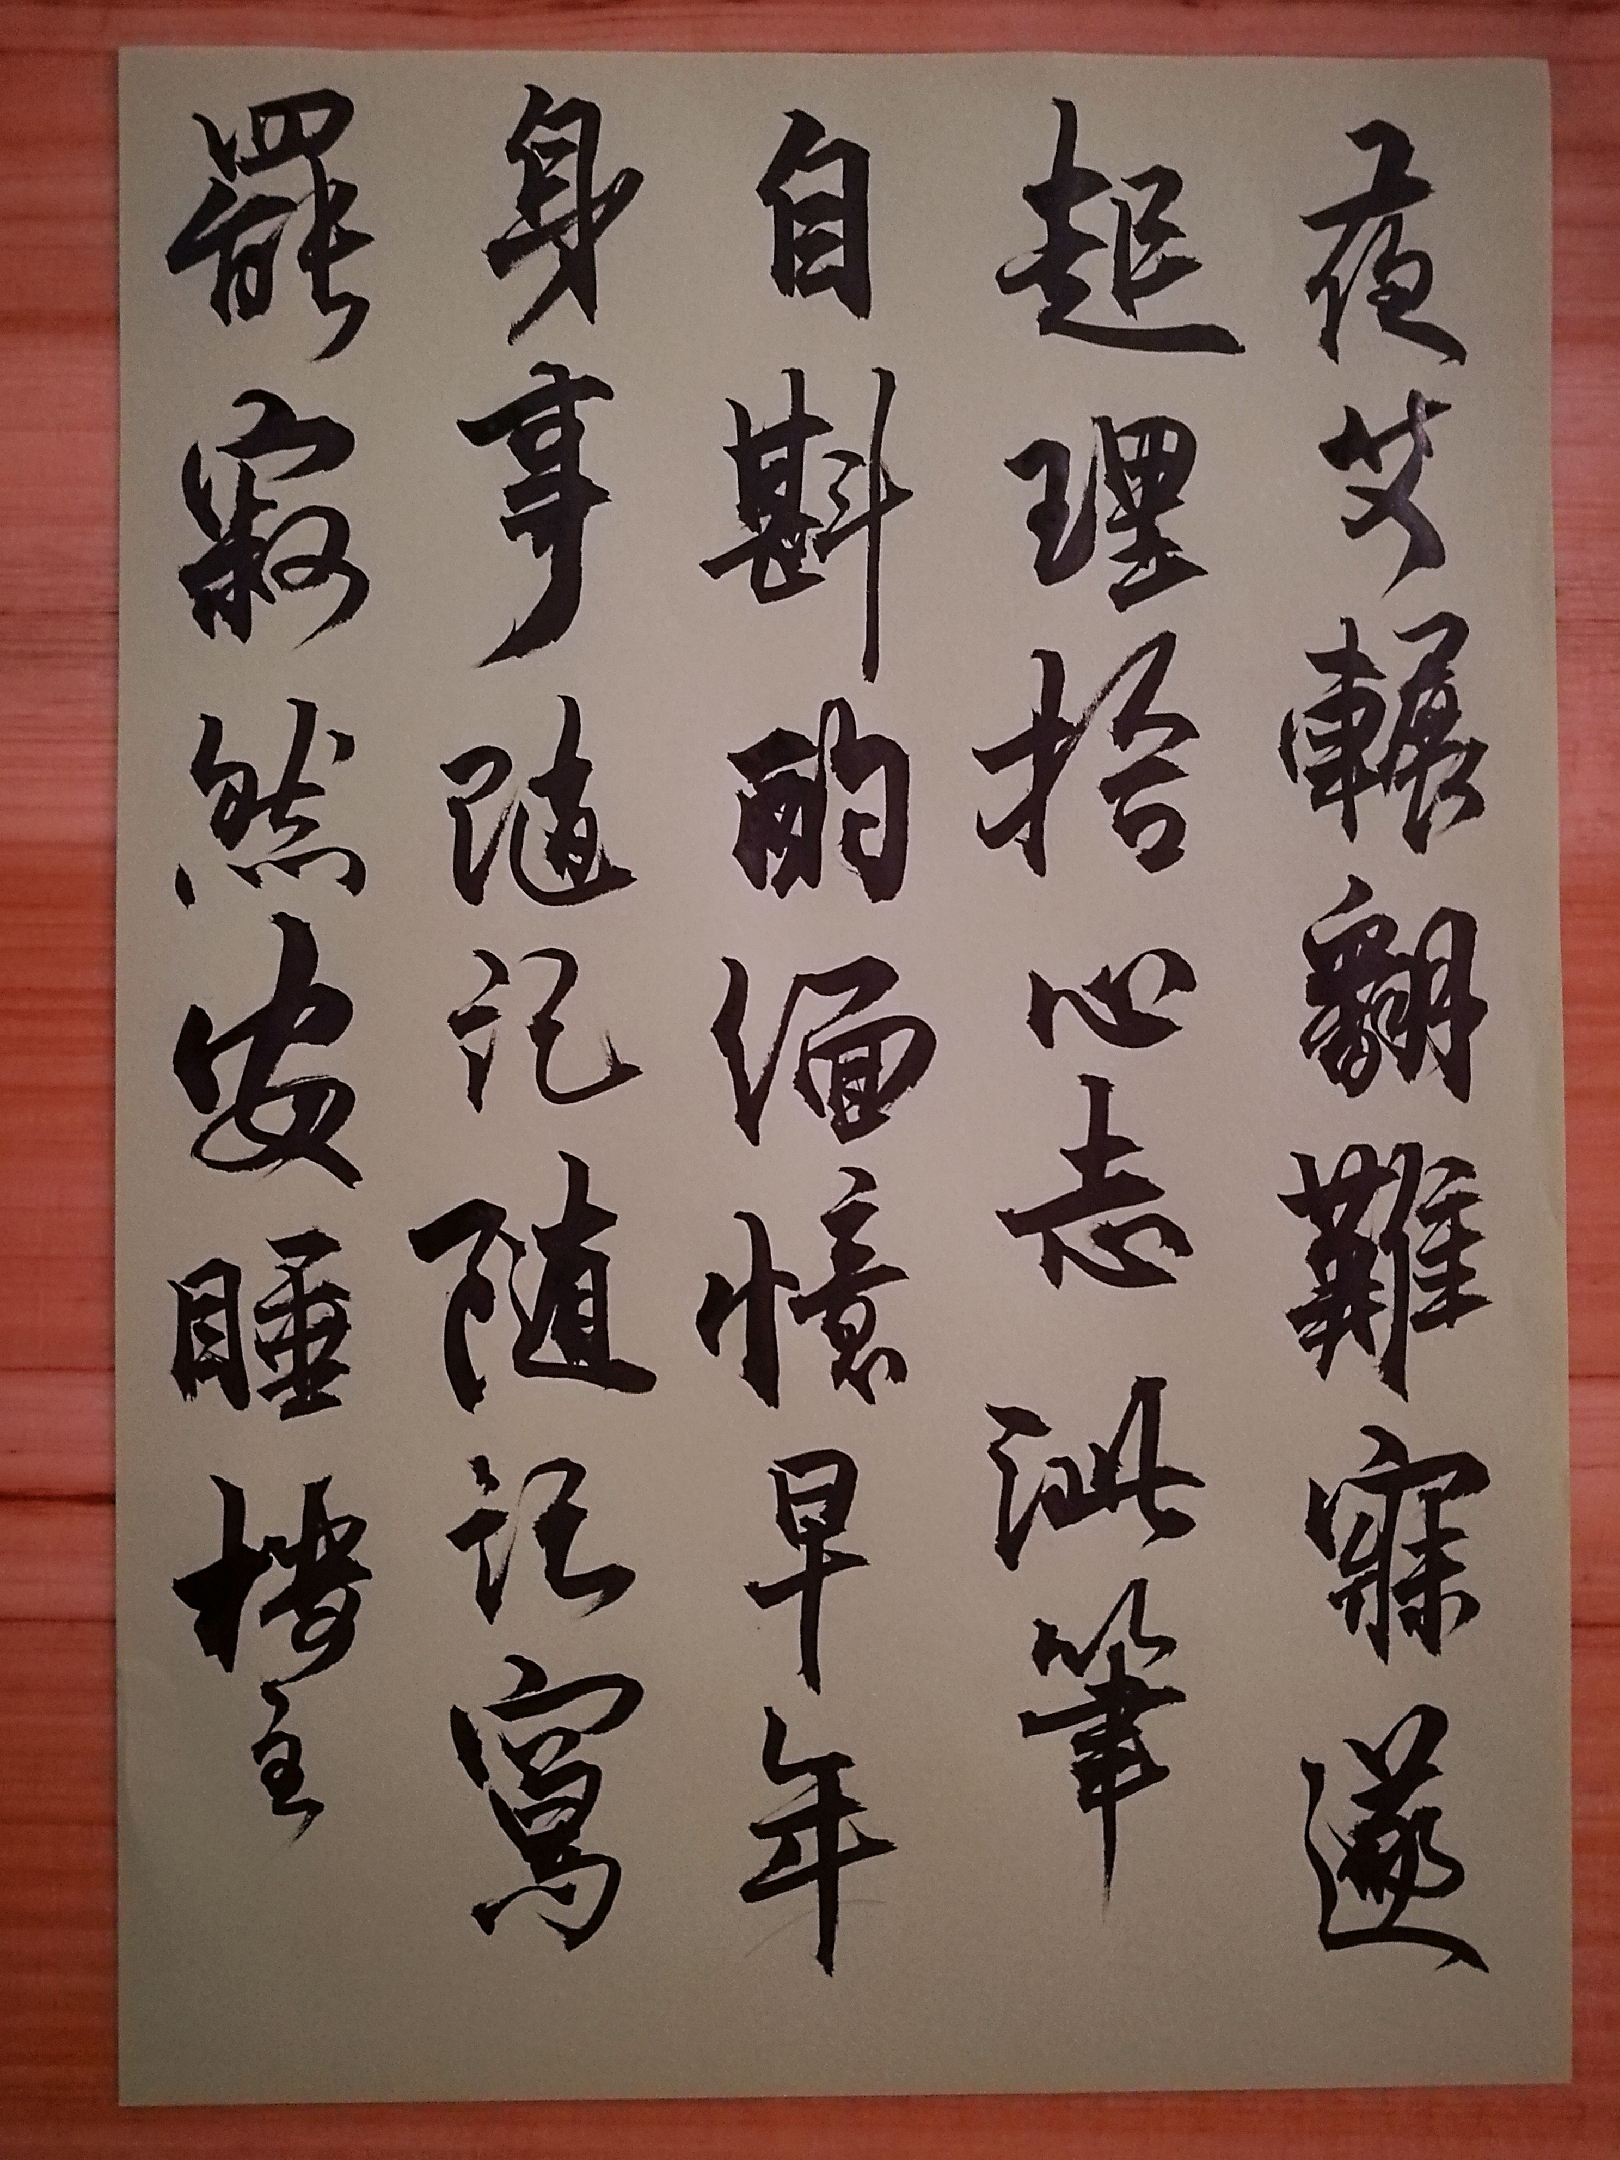 夜艾輾翻難寐遂
起理拾心志泚筆
自斟酌緬憶早年
身事随記随記寫
罷寂然安睡樓主